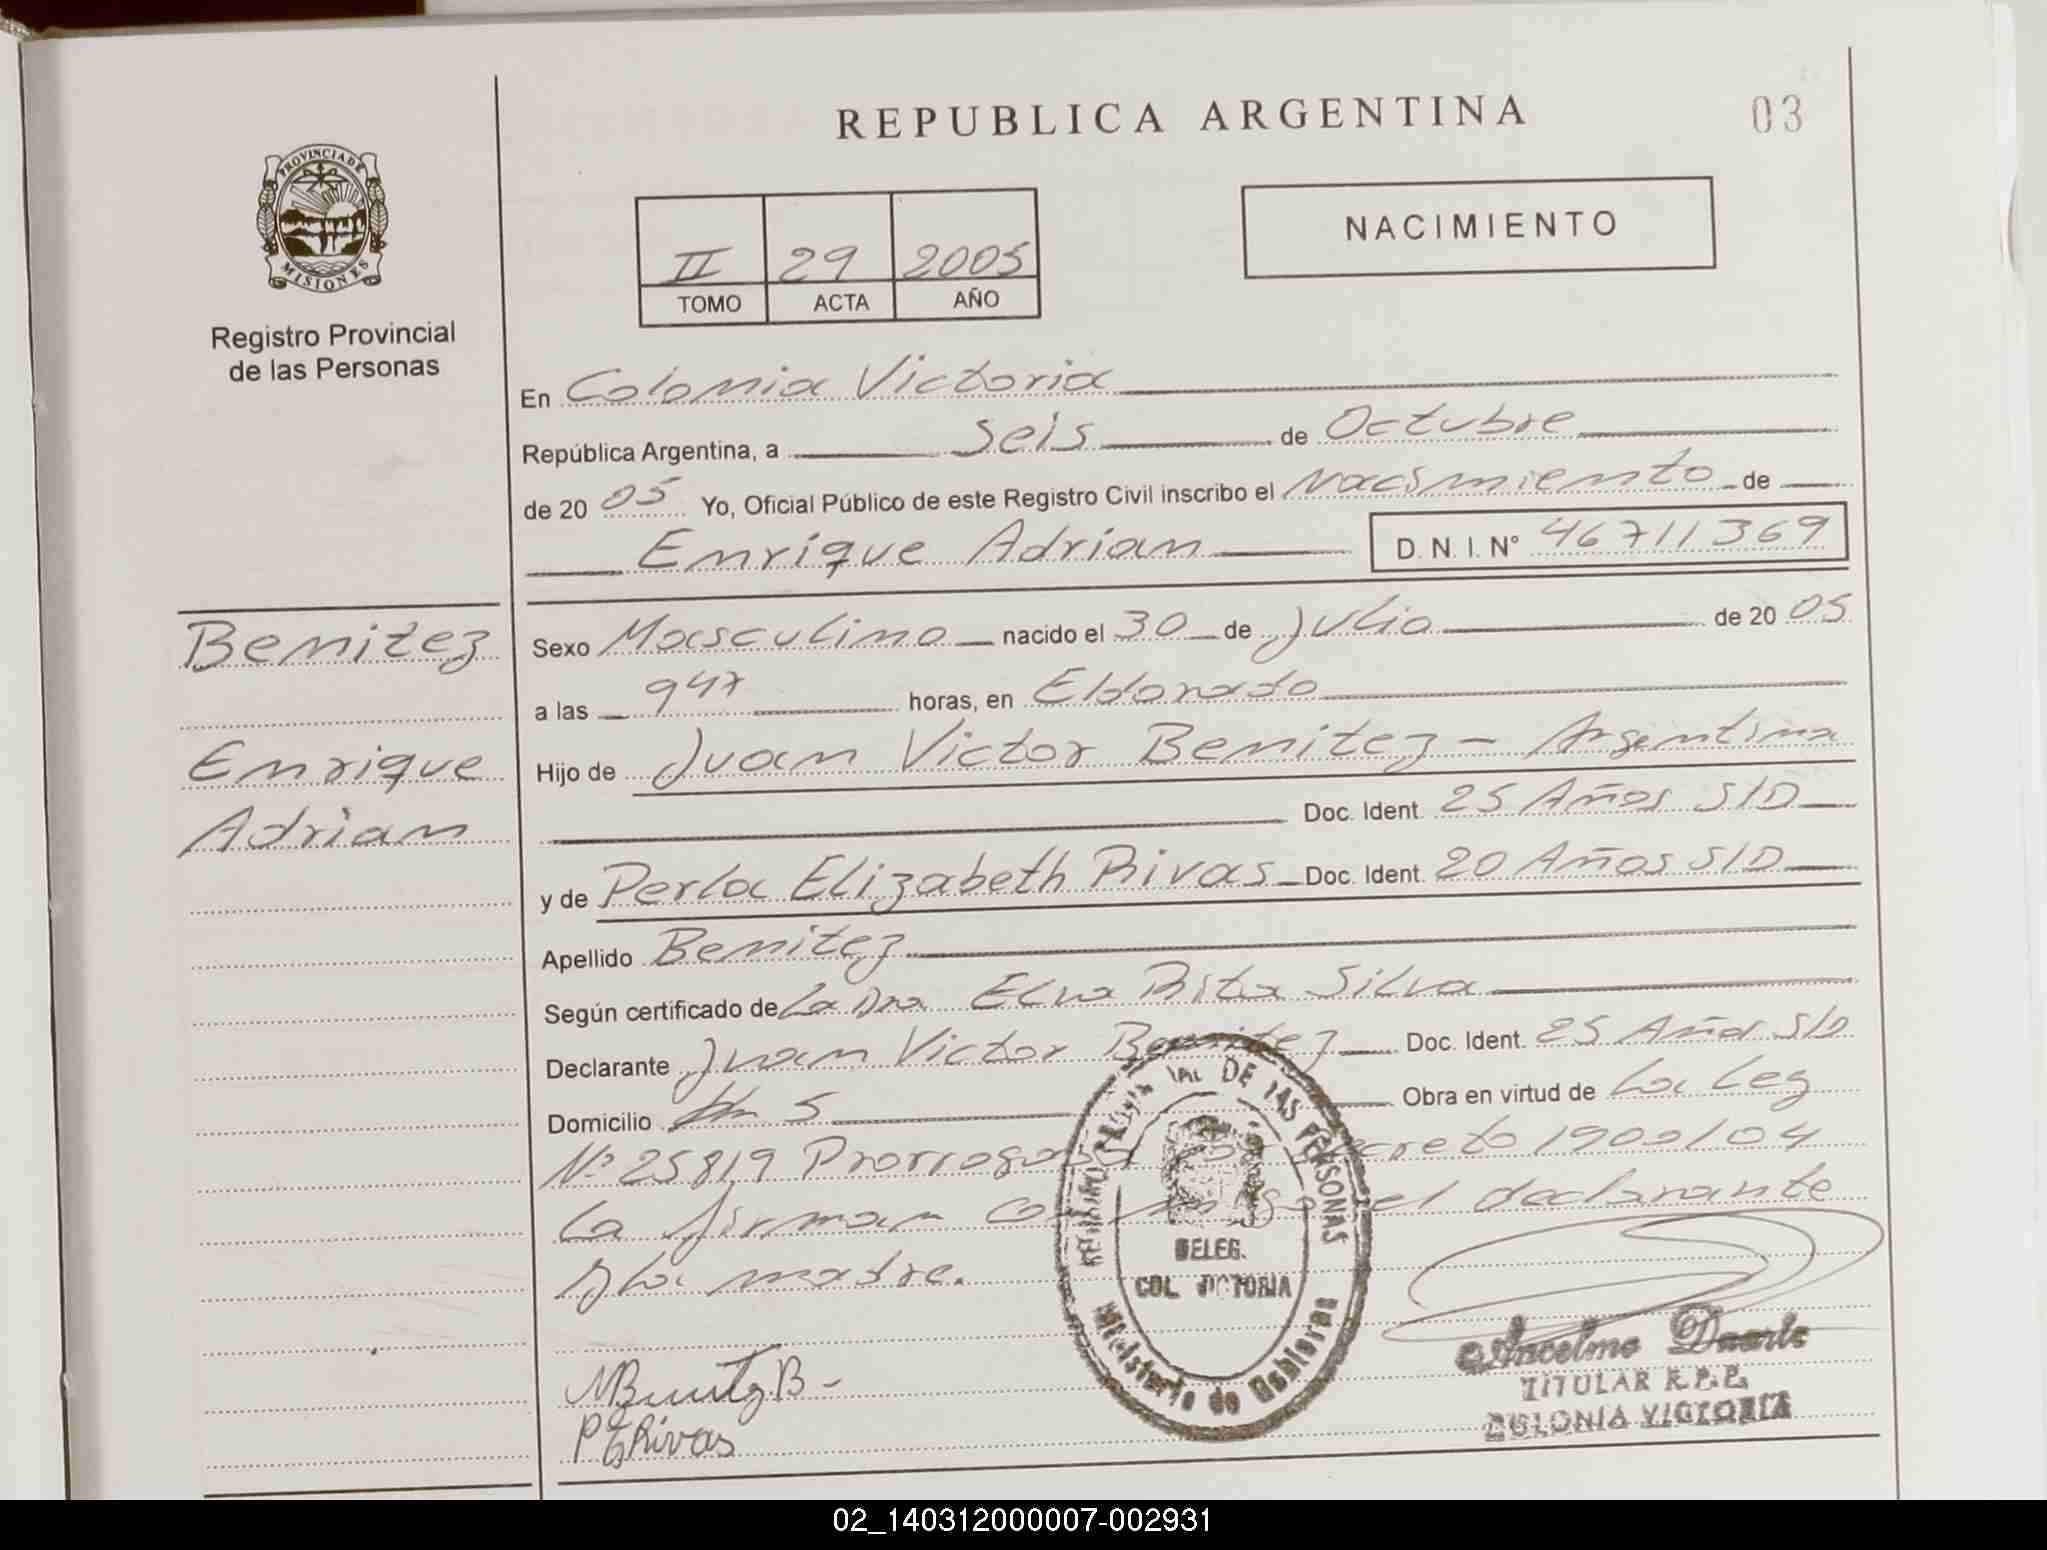 REPUBLICA ARGENTINA
03
PROVINCIA DE
MISIONES
Registro Provincial
de las Personas
II 29 2005
TOMO ACTA AÑO
NACIMIENTO
En Colonia Victoria
República Argentina, a Seis de Octubre
de 20 05 Yo, Oficial Público de este Registro Civil inscribo el Nacimiento de
Enrique Adrian D.N.I. N° 46711369
Benitez
Enrique
Adrian
Sexo Masculino nacido el 30 de Julio de 20 05
a las 947 horas, en Eldorado
Hijo de Juan Victor Benitez - Argentina
Doc. Ident. 25 Años S/D
y de Perla Elizabeth Rivas Doc. Ident. 20 Años S/D
Apellido Benitez
Según certificado de La Dra Elva Rita Silva
Declarante Juan Victor Benitez Doc. Ident. 25 Años S/D
Domicilio Km 5 Obra en virtud de La Ley
N° 25819 Prorrogada por Decreto 1900/04
La firman conmigo el declarante
y la madre.
DE LAS PERSONAS
DELEG.
COL. VICTORIA
Ministerio de Gobierno
Benitez B -
P E Rivas
Ancelmo Duarte
TITULAR R.P.P.
COLONIA VICTORIA
02_140312000007-002931